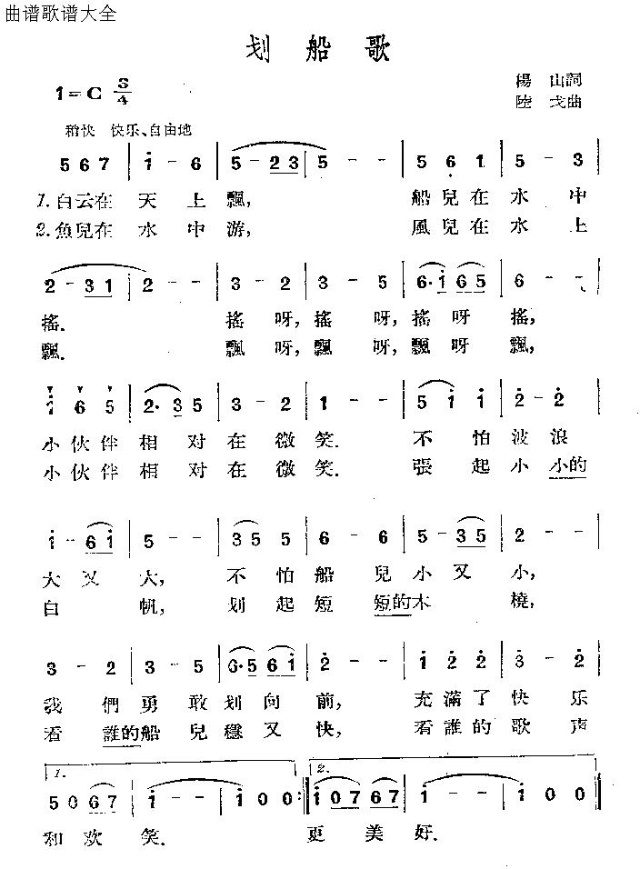 曲谱歌谱大全
划船歌
1=C 3/4
楊山詞
陸戈曲
稍快 快乐、自由地
5 6 7 | i - 6 | 5 - 2 3 | 5 - - | 5 6 1 | 5 - 3 |
1.白云在天上飄, 船兒在水中
2.魚兒在水中游, 風兒在水上
2 - 3 1 | 2 - - | 3 - 2 | 3 - 5 | 6· i 6 5 | 6 - - |
搖. 搖呀,搖呀,搖呀搖,
飄. 飄呀,飄呀,飄呀飄,
i 6 5 | 2· 3 5 | 3 - 2 | 1 - - | 5 i i | 2 - 2 |
小伙伴相对在微笑. 不怕波浪
小伙伴相对在微笑. 張起小小的
i - 6 i | 5 - - | 3 5 5 | 6 - 6 | 5 - 3 5 | 2 - - |
大又大, 不怕船兒小又小,
白帆, 划起短短的木橈,
3 - 2 | 3 - 5 | 6· 5 6 i | 2 - - | i 2 2 | 3 - 2 |
我們勇敢划向前, 充滿了快乐
看誰的船兒穩又快, 看誰的歌声
1. 2.
5 0 6 7 | i - - | i 0 0 :| i 0 7 6 7 | i - - | i 0 0 |
和欢笑. 更美好.